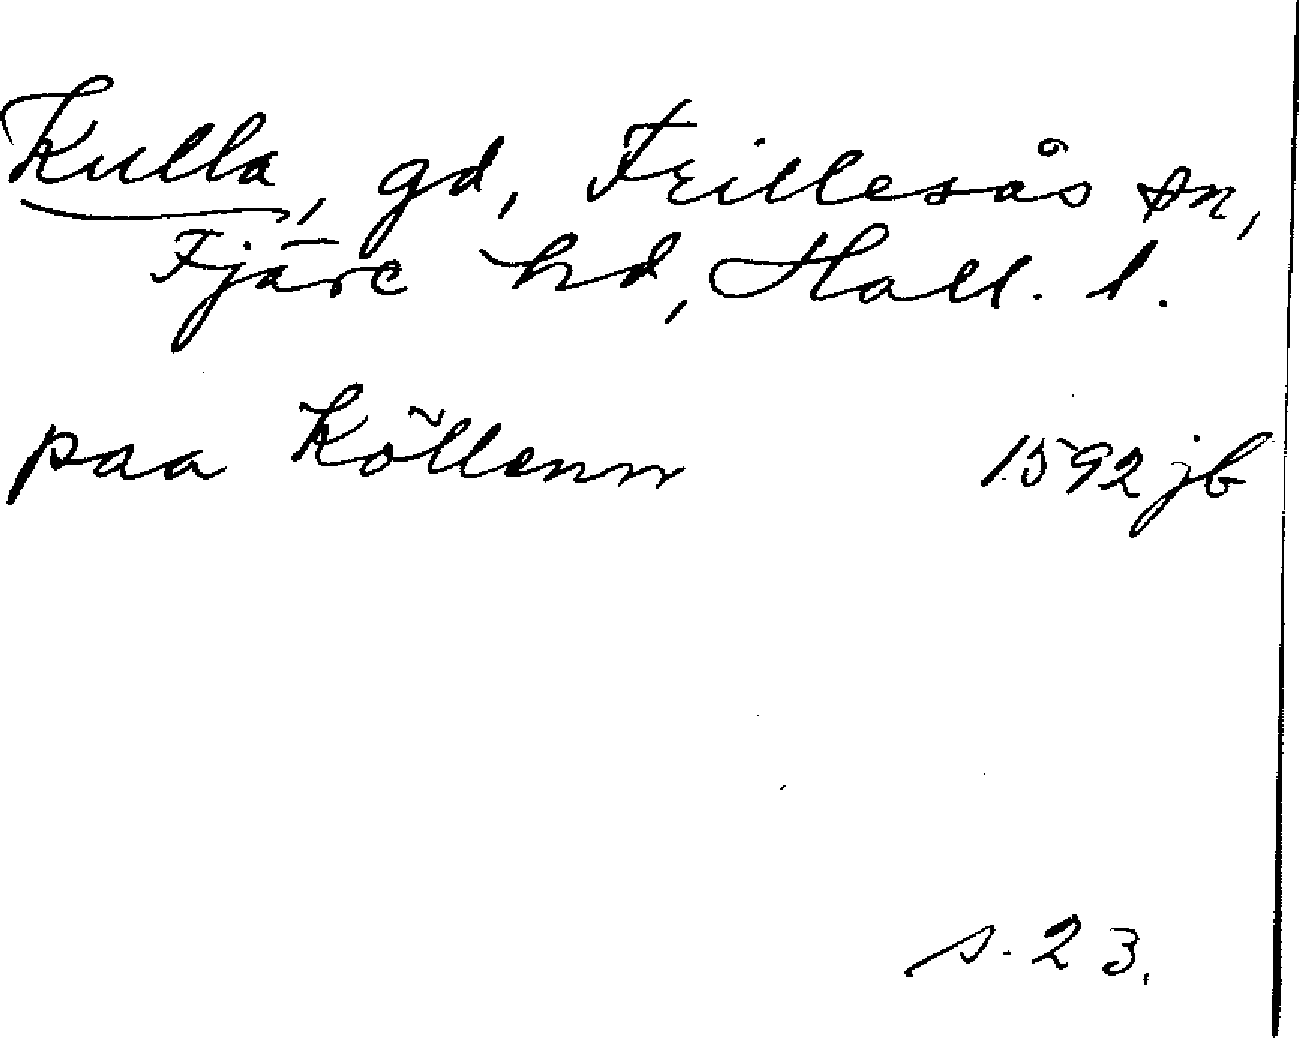 Kulla, gd, Frillesås sn,
Fjäre hd, Hall. l.
paa Köllenn 1592 jb
s. 23.